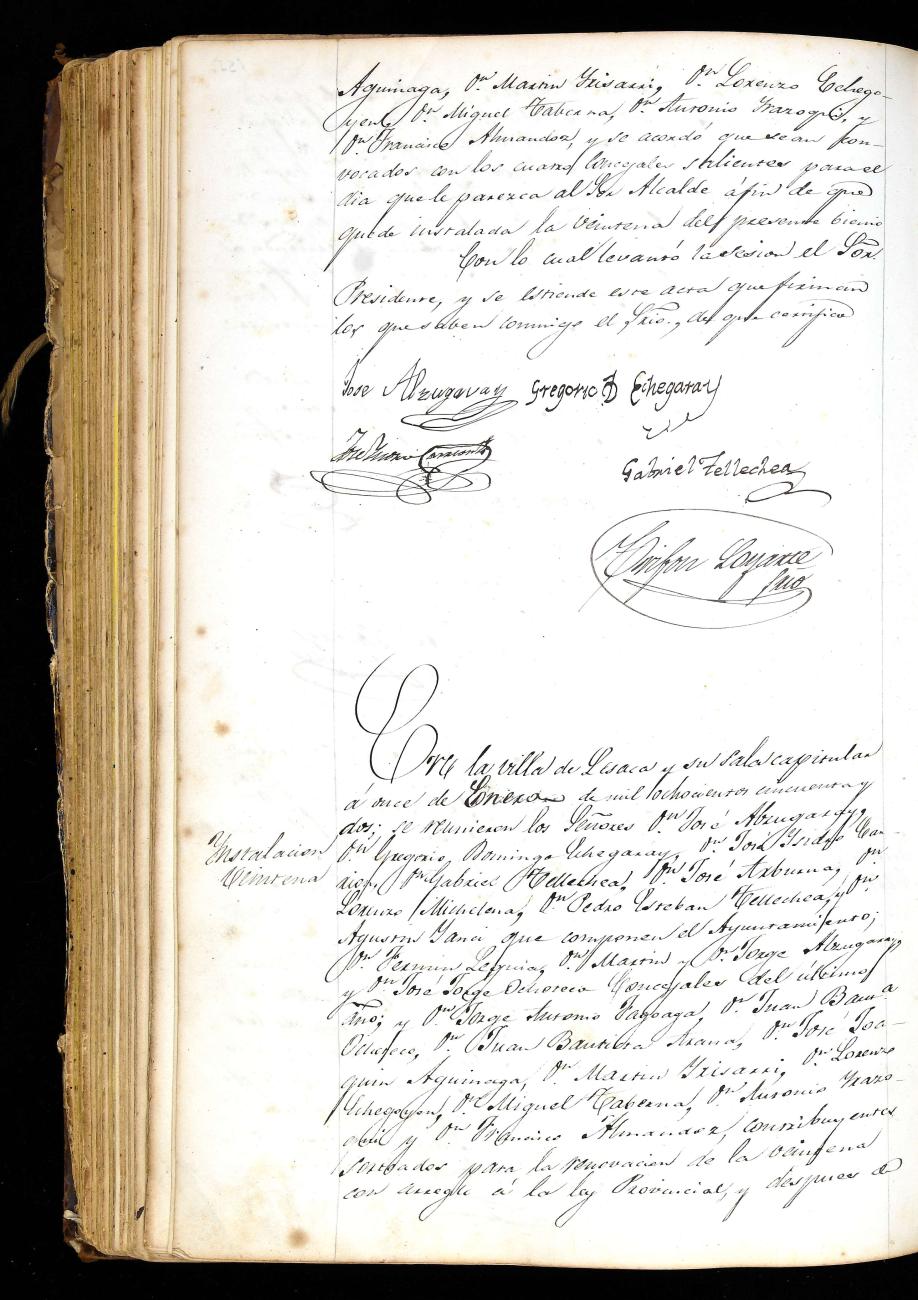 Aguinaga, Dn Martin Yrisarri, Dn Lorenzo Echego-
yen, Dn Miguel Taberna, Dn Antonio Yrazoqui, y
Dn Francisco Almandoz, y se acordó que sean con-
vocados con los cuatro Concejales salientes para el
dia que le parezca al Sor Alcalde áfin de que
quede instalada la Veintena del presente bienio
Con lo cual levantó la sesion el Sor
Presidente, y se estiende este acta que firman
los que saben conmigo el Srio., de que certifico
José Alzugaray Gregorio D Echegaray
José Ysidro
Gabriel Tellechea
Trifon Loyarte
Srio
En la villa de Lesaca y su sala capitular
á once de Enero de mil ochocientos cincuenta y
dos; se reunieron los Señores Dn José Alzugaray,
Ynstalacion
Veintena
Dn Gregorio Domingo Echegaray, Dn José Ysidro
Dn Gabriel Tellechea, Dn José Arburua, Dn
Lorenzo Michelena, Dn Pedro Esteban Tellechea, y Dn
Agustin Yanci que componen el Ayuntamiento;
Dn Fermin Leguia, Dn Martin y Dn Jorge Alzugaray,
y Dn José Jorge Ochoteco Concejales del último
año; y Dn Jorge Antonio Fagoaga, Dn Juan Bauta
Ochoteco, Dn Juan Bautista Arana, Dn José Joa-
quin Aguinaga, Dn Martin Yrisarri, Dn Lorenzo
Echegoyen, Dn Miguel Taberna, Dn Antonio Yrazo-
qui y Dn Francisco Almandoz, contribuyentes
sorteados para la renovacion de la veintena
con arreglo á la ley Provincial, y despues de